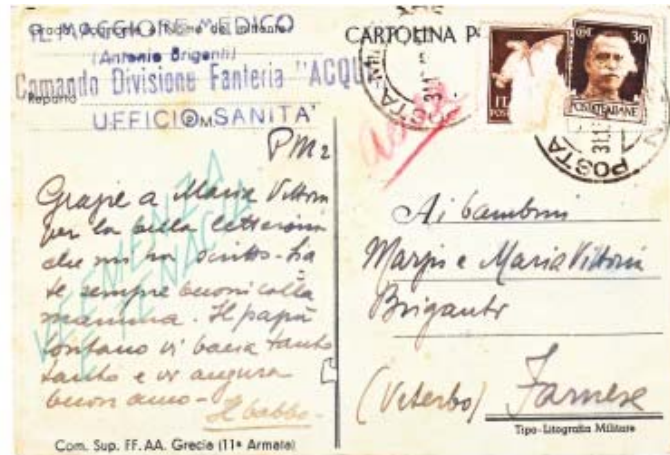 IL MAGGIORE MEDICO
(Antonio Briganti)
Comando Divisione Fanteria "ACQUI"
Reparto
UFFICIO SANITA'
P.M.
PM2
Grazie a Maria Vittoria
per la bella letterina
che mi ha scritto - Sia
te sempre buoni colla
mamma. Il papà
lontano vi bacia tanto
tanto e vi augura
buon anno -
Il babbo -
VEEMENZA
E TENACIA
Com. Sup. FF. AA. Grecia (11ª Armata)
CARTOLINA P
POSTA
30
POSTE ITALIANE
POSTA
Ai bambini
e Maria Vittoria
Briganti
(Viterbo) Farnese
Tipo-Litografia Militare